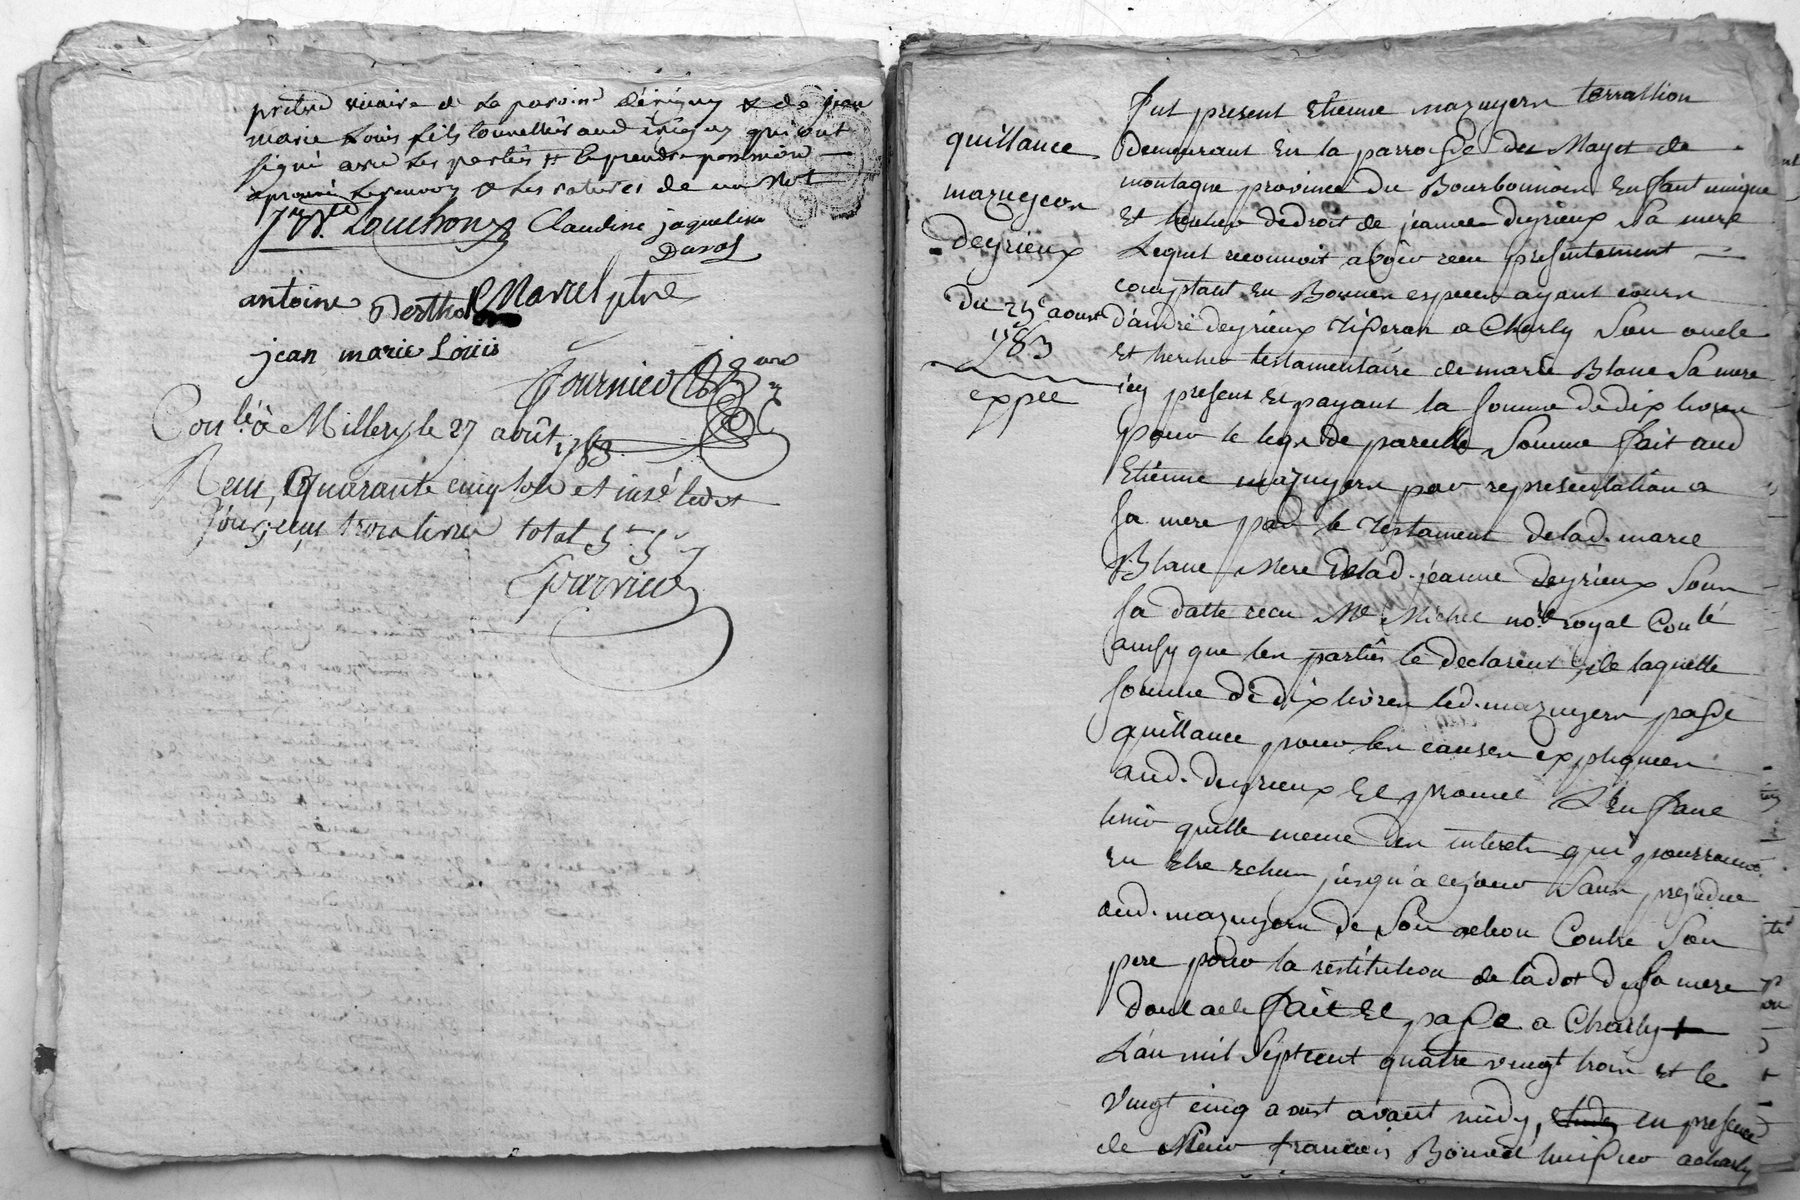 prêtre vicaire de la paroisse d'érigny & de jean
marie Louis fils tonnellier aud érigny qui ont
signé avec les parties
aprouvé le renvoy & les ratures de un mot
Louchon Claudine jaqueline
Duras
antoine Berthol Marcel ptre
jean marie Louis
Fournier
Con.lé à Millery le 27 août 1783
Recu, quarante cinq sols et insé ledit
jour, reçu trois livres total 5 5
Fournier
quittance
mazuyer
Deyrieux
Du 25e aoust
1783
expée
fut present Etienne mazuyer terrassion
Demeurant En la parroisse du Mayet de
montagne province du Bourbonnois Enfant unique
Et heritier de droit de jeanne deyrieux Sa mere
Lequel reconnoit avoir recu presentement
comptant En Bonnes especes ayant cours
d'andré deyrieux Tisseran a Charly Son oncle
Et heritier testamentaire de marie Blanc Sa mere
icy present Et payant la somme de dix livres
pour le legs de pareille Somme fait aud
Etienne mazuyer par representation a
sa mere par le Testament de lad. marie
Blanc Mere de lad. jeanne Deyrieux Sous
sa datte recu Me Michel no.re royal Con.lé
ainsy que les parties le declarent, de laquelle
somme de dix livres led. mazuyer passe
quittance pour les causes expliquées
aud. deyrieux Et promet L'En faire
tenir quitte meme des interets qui pourroient
En Etre echus jusqu'a ce jour Sans prejudice
aud. mazuyer de Son action Contre Son
pere pour la restitution de la dot de sa mere
dont acte fait Et passé a Charly +
L'an mil Sept cent quatre vingt trois et le
vingt cinq aoust avant midy, en presence
de Sieur francois Bonnet huissier a charly